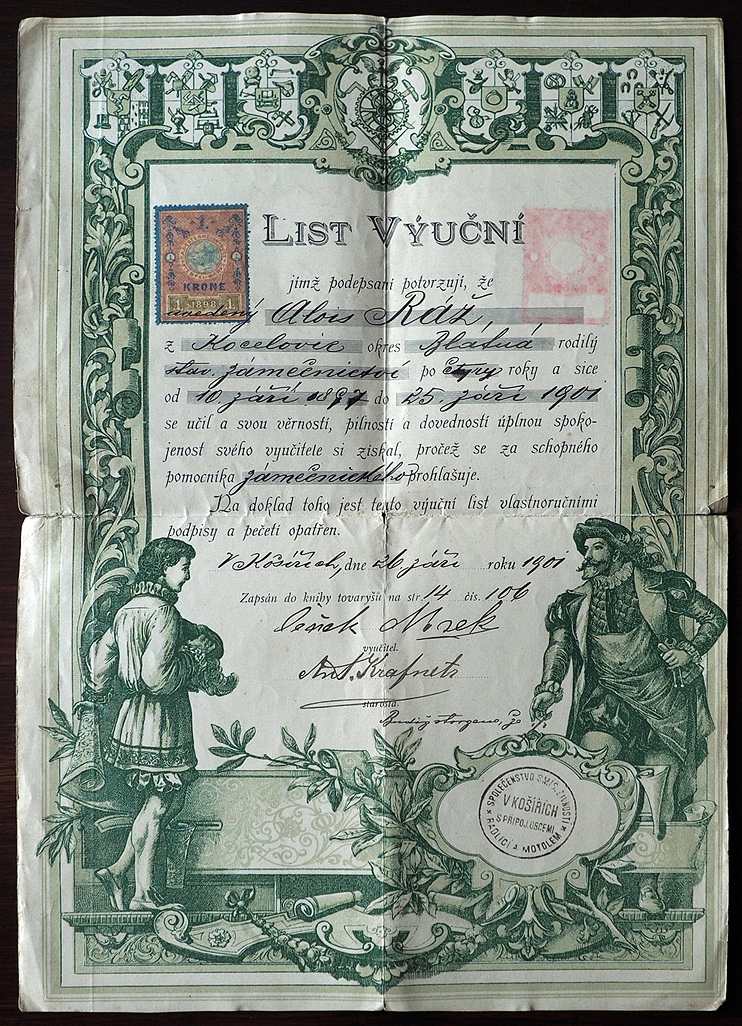 1
KRONE
1 1898 1
LIST VÝUČNÍ
jímž podepsaní potvrzují, že
uvedený Alois Ráž,
z Kocelovic okres Blatná rodilý
stav. zámečnictví po čtyry roky a sice
od 10. září 1897 do 25. září 1901
se učil a svou věrností, pilností a dovedností úplnou spoko-
jenost svého vyučitele si získal, pročež se za schopného
pomocníka zámečnického prohlašuje.
Na doklad toho jest tento výuční list vlastnoručními
podpisy a pečetí opatřen.
V Košířích, dne 26 září roku 1901
Zapsán do knihy tovaryšů na str. 14 čís. 106
Čeněk
vyučitel.
Ant. Krafnetr
starosta.
SPOLEČENSTVO SMÍŠ. ŽIVNOSTÍ
V KOŠÍŘÍCH
S PŘIPOJ. OBCEMI
RADLICÍ A MOTOLEM